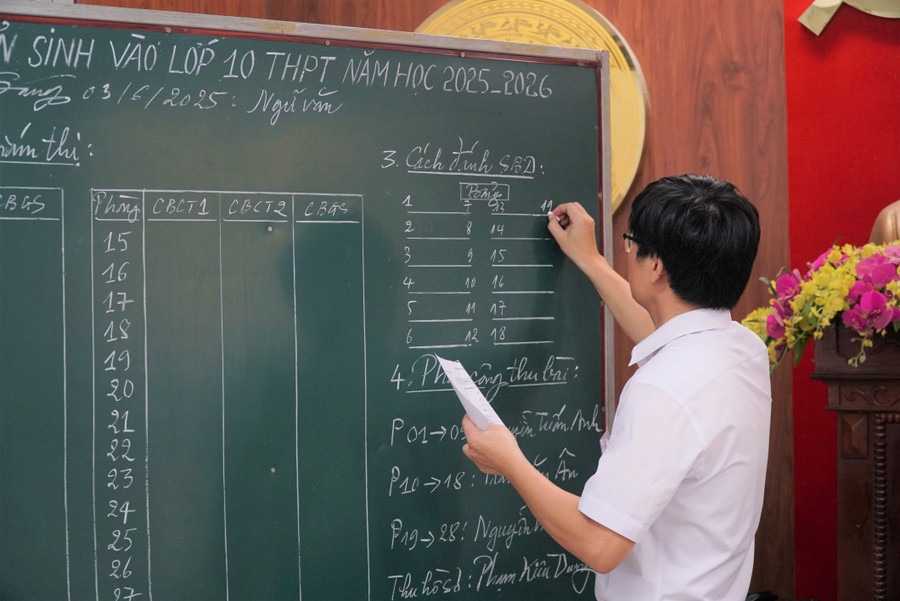 SINH VÀO LỚP 10 THPT NĂM HỌC 2025-2026
Sáng 03/6/2025: Ngữ văn
thị:
CBGS
Phòng CBCT1 CBCT2 CBGS
15
16
17
18
19
20
21
22
23
24
25
26
27
3. Cách đánh SBD:
1 7
2 8 14
3 9 15
4 10 16
5 11 17
6 12 18
4. thu bài:
P01→09 Tuấn Anh
P10→18: Ân
P19→28: Nguyễn
Thu hồ sơ: Phạm Kiều Dung